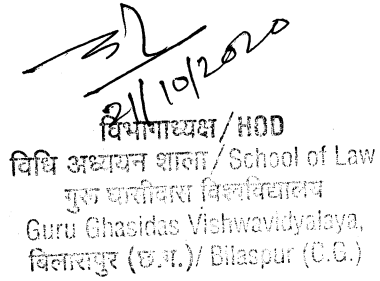 21/10/2020
विभागाध्यक्ष/HOD
विधि अध्ययन शाला/School of Law
गुरू घासीदास विश्वविद्यालय
Guru Ghasidas Vishwavidyalaya,
बिलासपुर (छ.ग.)/ Bilaspur (C.G.)